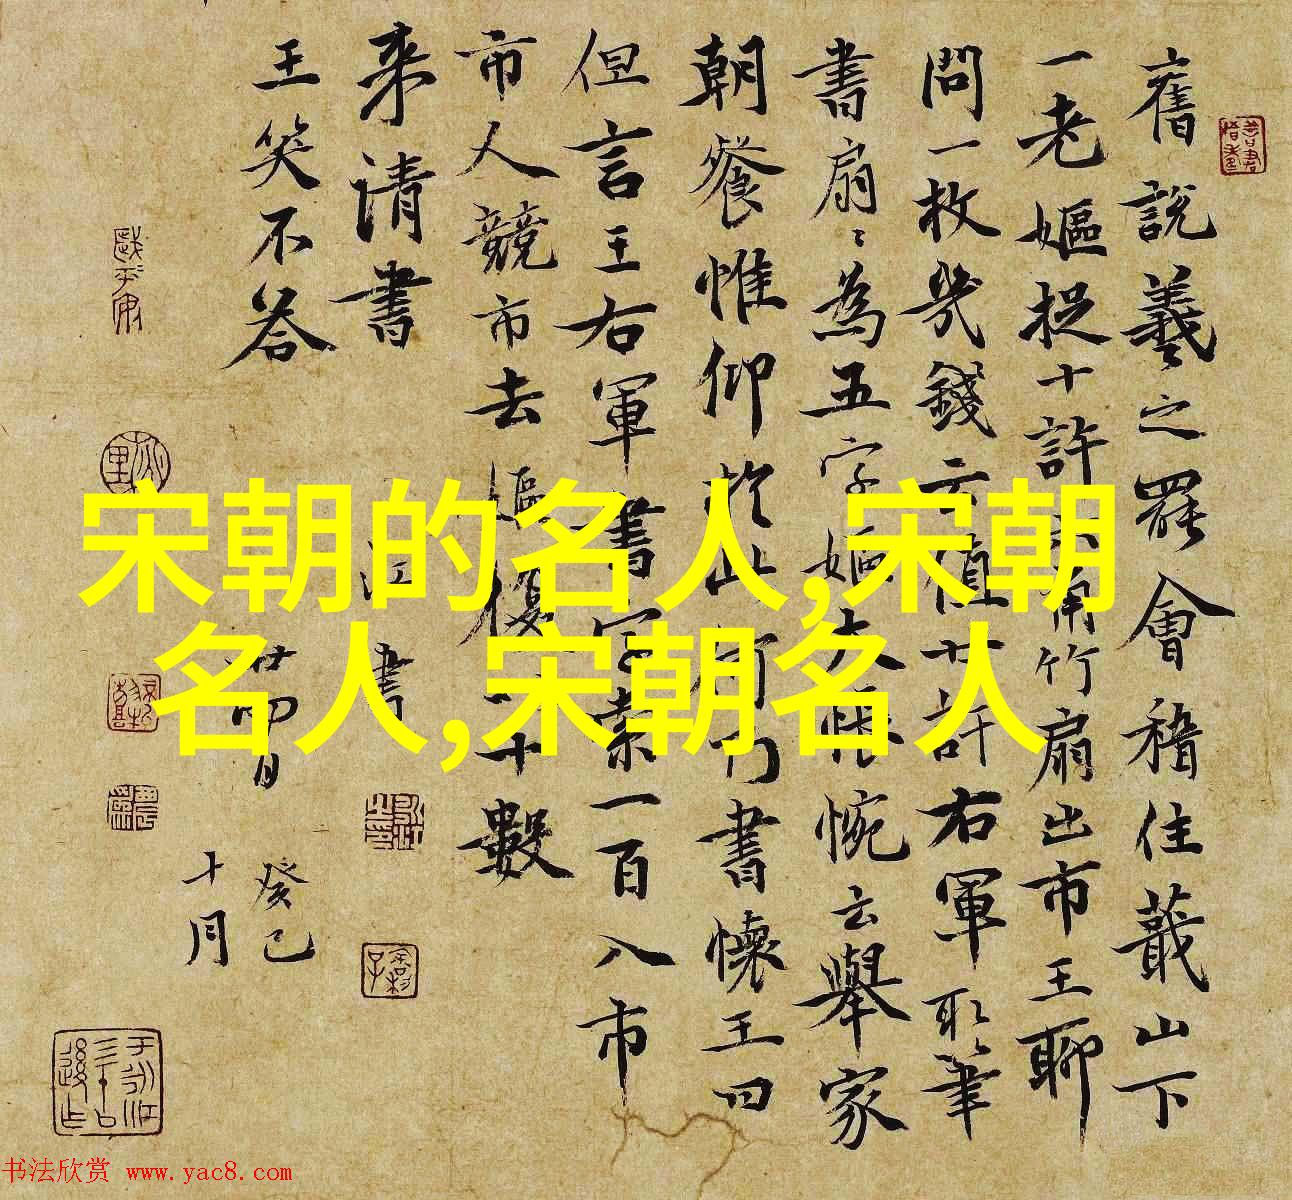 舊說羲之罷會稽住蕺山下
一老嫗捉十許 角竹扇出市王聊
問一枚幾錢云值廿許右軍取筆
書扇〻為五字嫗大悵惋云舉家
朝餐惟仰於此何乃書懷王曰
但言王右軍書字索一百入市
市人競市去嫗復 十數
来請書
王笑不答
書
廿四日
癸巳
十月
宋朝的名人,宋朝
名人,宋朝名人
书法欣赏 www.yac8.com